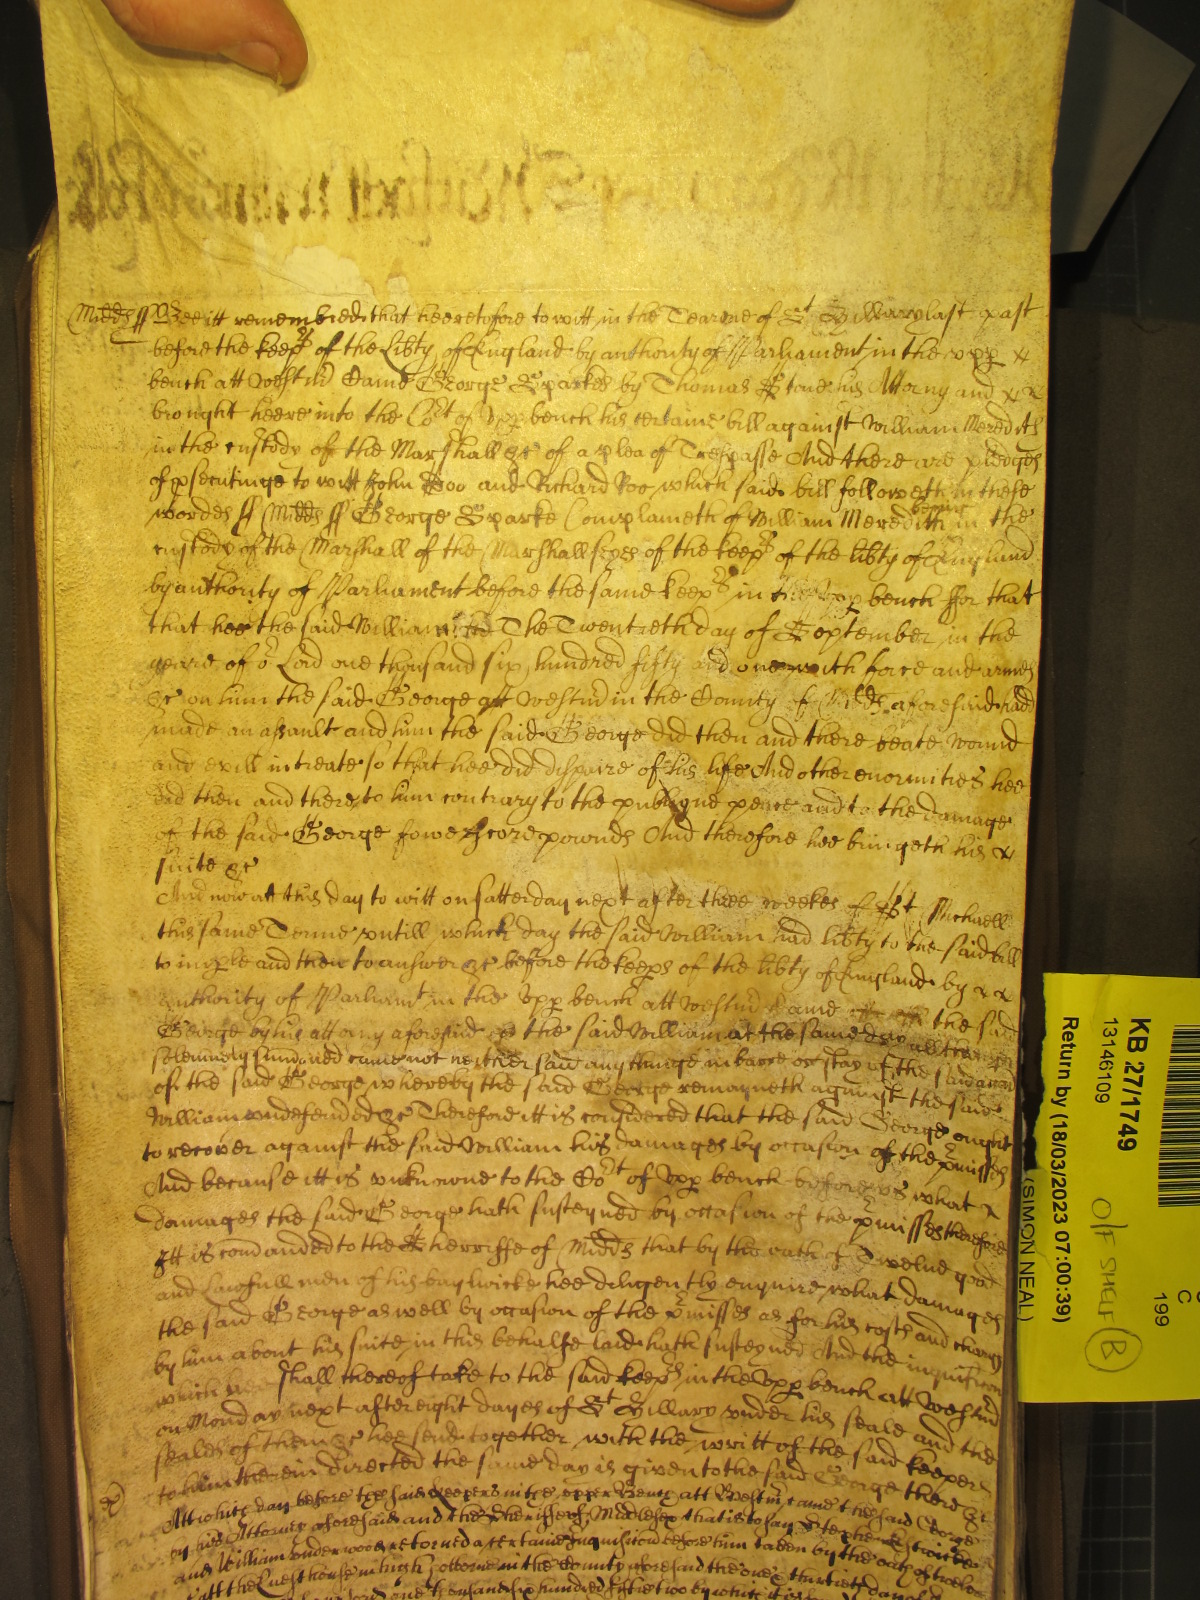 Midds ss Bee itt remembred that heeretofore to witt in the Tearme of St Hillary last past
before the keeps of the libty of England by authority of Parliament in the upp x
bench att Westmr Came George Sparkes by Thomas Stone his Attorny and x x
brought heere into the Cort of upp bench his certaine bill against William Meredith
in the custody of the Marshall &c of a plea of Trespasse And there are pledges
of psecutinge to witt John Doo and Richard Roo which said bill followeth in these
wordes ss Midds ss George Sparke Complaineth of William Meredith beinge in the
custody of the Marshall of the Marshallseyes of the keeps of the libty of England
by authority of Parliament before the same keeps in the upp bench ffor that
that hee the said William The Twentieth day of September in the
yeare of or Lord one thousand six hundred fifty and one with force and armes
&c on him the said George att Westmr in the County of Midds aforesaid had
made an assault and him the said George did then and there beate wound
and evill intreate so that hee did dispaire of his life And other enormities hee
did then and there to him contrary to the publique peace and to the damage
of the said George fowerscore pownds And therefore hee bringeth his x
suite &c
And now att this day to witt on satterday next after three weekes of St Michaell
this same Terme untill which day the said William had libty to the said bill
to imple and then to answer &c before the keeps of the libty of England by x x
authority of Parliamt in the upp bench att Westmr Came the said
George by his attorny aforesaid the said William at the same day
solemnly summoned came not neither said any thinge in barre or stay of the said
of the said George whereby the said George remayneth against the said
William undefended &c Therefore itt is considered that the said George ought
to recover against the said William his damages by occasion of the pmisses
And because itt is unknowne to the Cort of upp bench before us what x
damages the said George hath susteyned by occasion of the pmisses therefore
Itt is comanded to the Sherriffe of Midds that by the oath of Twelve good
and lawfull men of his baylywicke hee diligently enquire what damages
the said George as well by occasion of the pmisses as for his costs and charges
by him about his suite in this behalfe laid hath susteyned And the inquisicon
which hee shall thereof take to the said keeps in the upp bench att Westmr
on Monday next after eight dayes of St Hillary under his seale and the
seales of them &c hee send together with the writt of the said keepers
to him therein directed the same day is given to the said George there &c
Att which day before the said keepers in the upper Bench att Westmr came the said George
by his Attorney aforesaid and the Sherriffe of Middlesex that is to say Stephen Estwicke
and William Underwood returned a certaine Inquisicon before him taken by the oath of twelve
att the Quest house in high holborne in the County aforesaid the one & thirtieth day of
Lord one thousand six hundred fiftie two by which it is
KB 27/1749
13146109
Return by (18/03/2023 07:00:39)
(SIMON NEAL)
Off SHELF
B
C
199